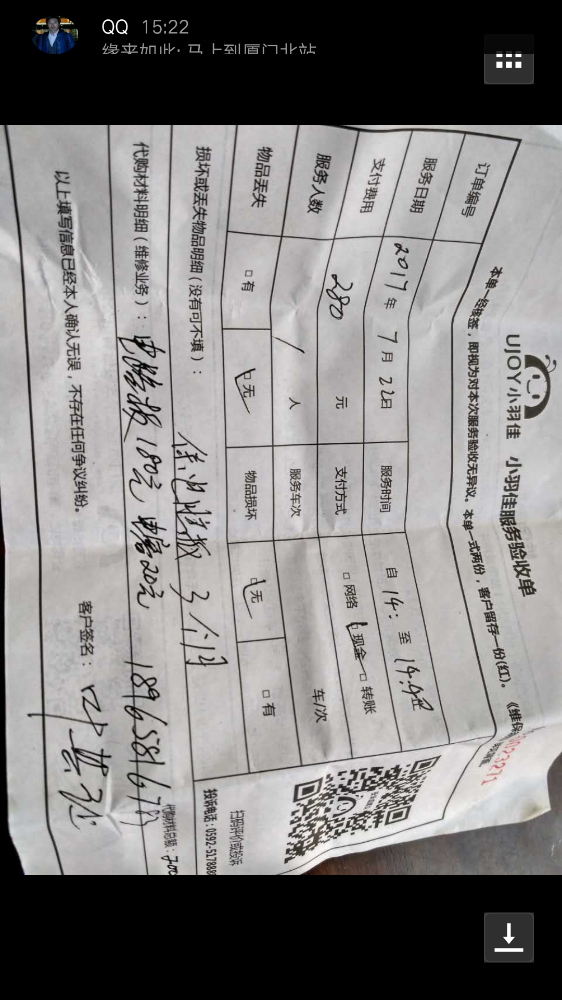 QQ 15:22
缘来如此: 马上到厦门北站
UJOY小羽佳 小羽佳服务验收单
《维保
0023271
本单一经核签，即视为对本次服务验收无异议。本单一式两份，客户留存一份(红)。
订单编号
服务日期 2017年7月22日 服务时间 自14: 至
支付费用 280 元 支付方式 □网络 □现金 □转账
服务人数 1 人 服务车次 车/次
物品丢失 □有 □无 物品损坏 □无 □有
损坏或丢失物品明细（没有可不填）： 保 3个月
代购材料明细（维修业务）： 电脑板180元 20元 1896581678
代购材料总额: 200
以上填写信息已经本人确认无误，不存在任何争议纠纷。 客户签名：
扫码评价或投诉
投诉电话: 0592-5178888